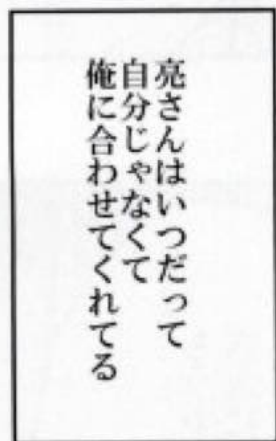 亮さんはいつだって
自分じゃなくて
俺に合わせてくれてる